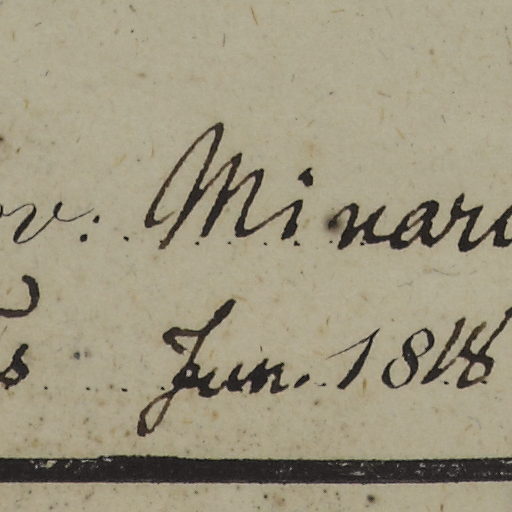 ov. Minar
s Jun. 1818